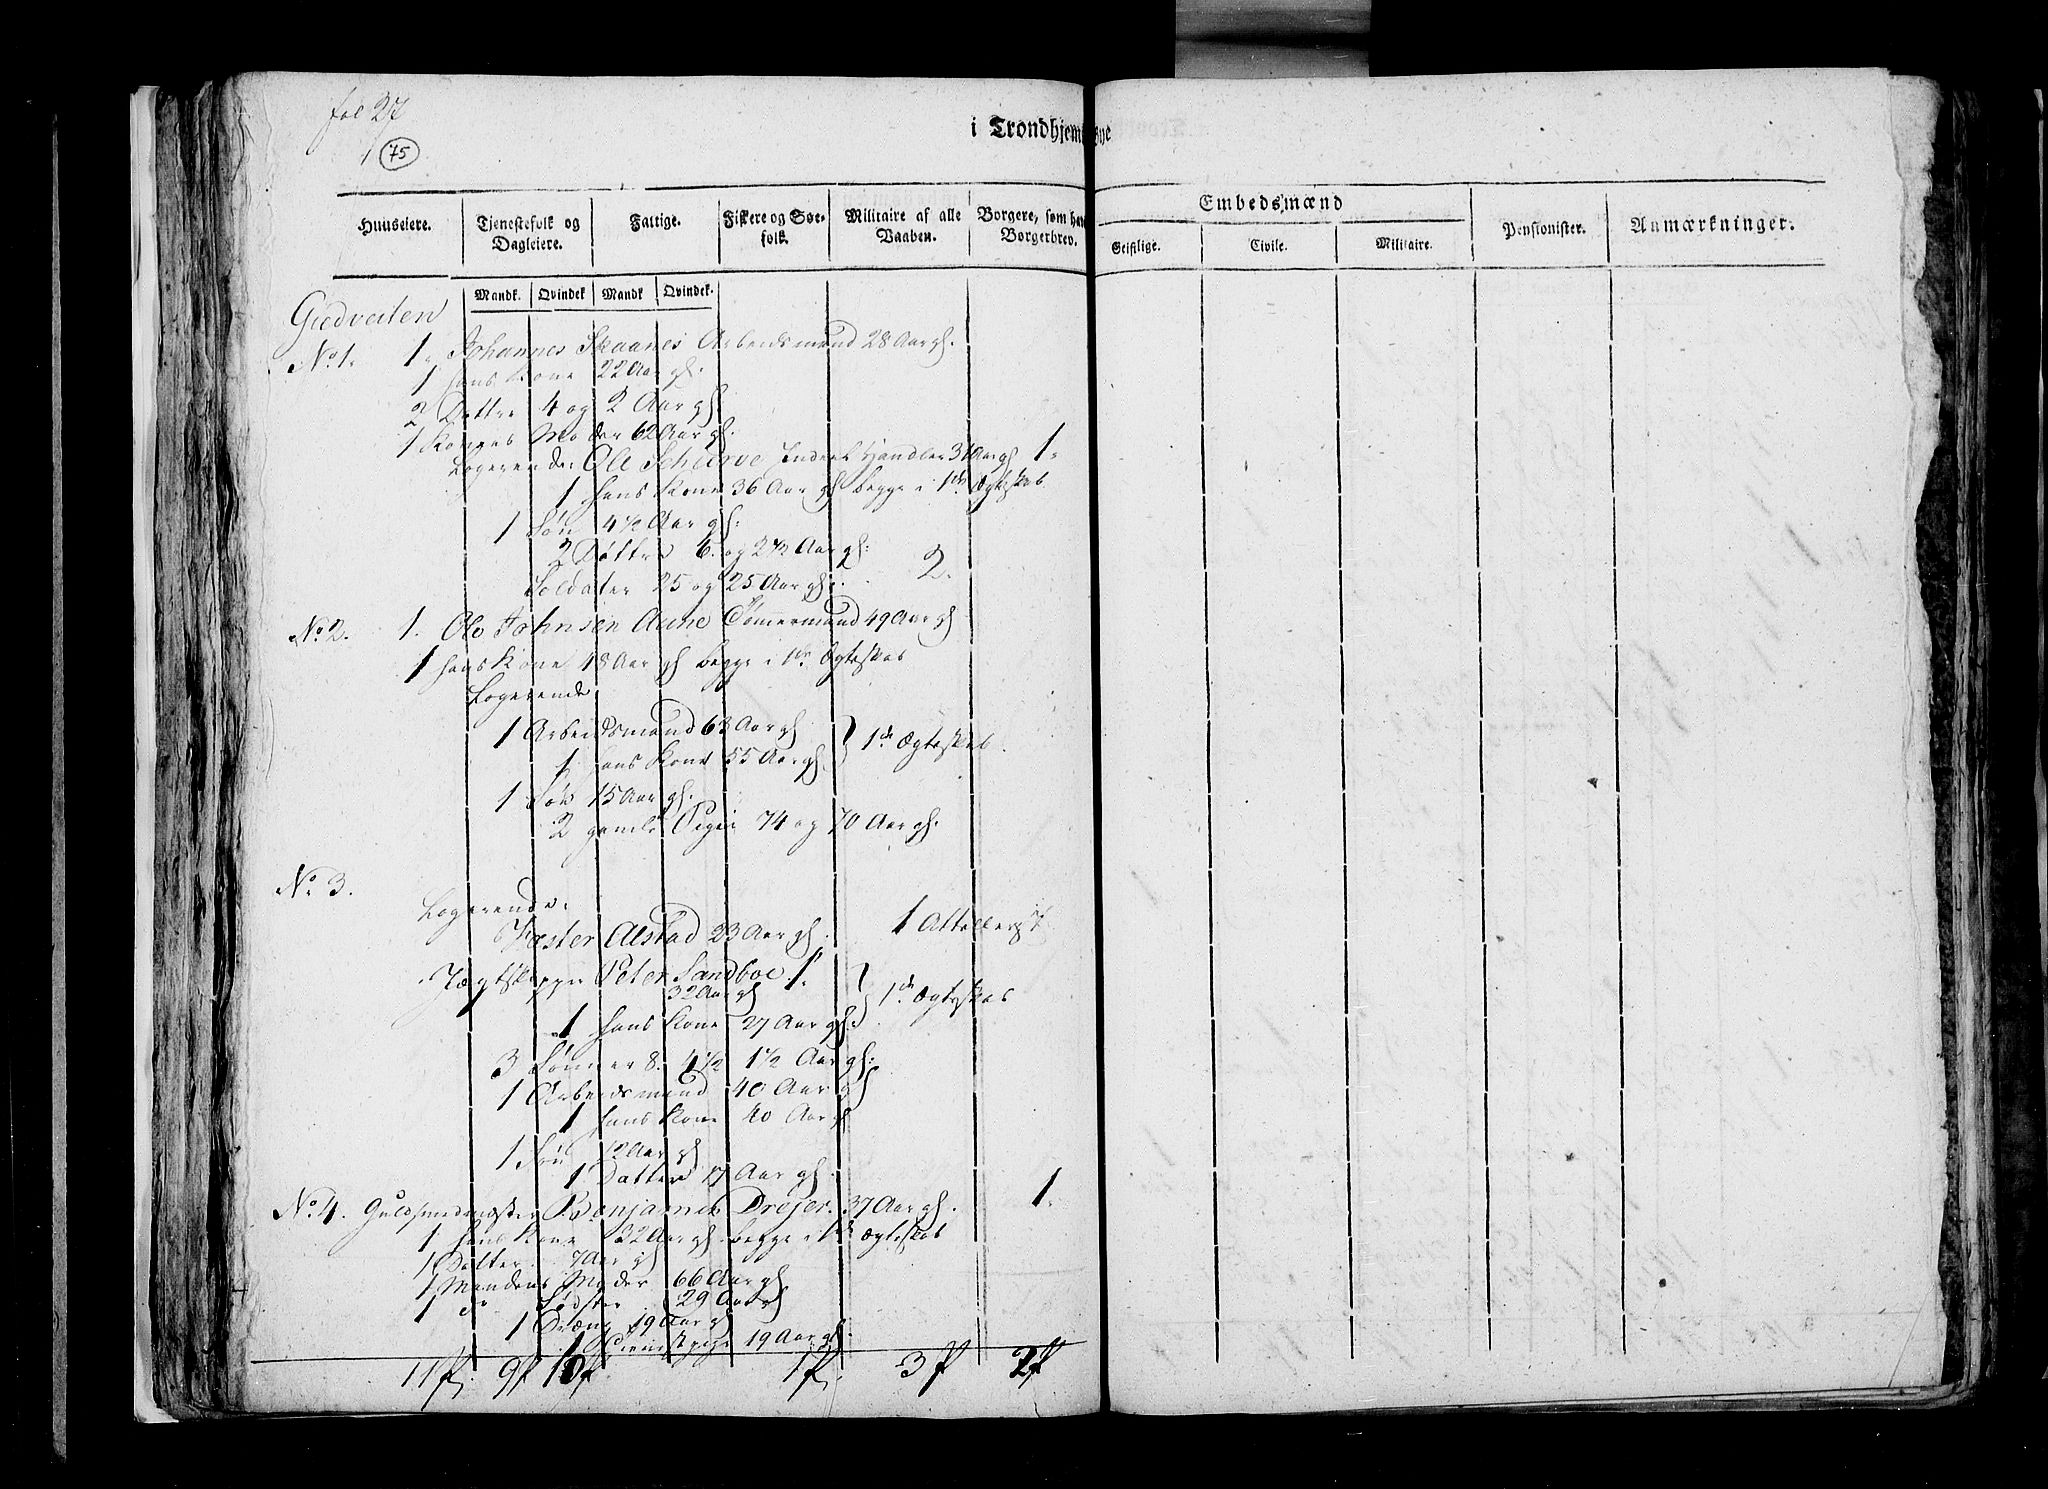 fol 27
75
i Trondhjems Bye
Huuseiere. Tjenestefolk og Dagleiere. Fattige. Fiskere og Søefolk. Militaire af alle Vaaben. Borgere, som have Borgerbrev. Embedsmænd Pensionister. Anmærkninger.
Geistlige. Civile. Militaire.
Mandk. Qvindek Mandk Qvindek.
Giedveiten
No 1. 1. Johannes Skaanes Arbeidsmand 28 Aar gl.
1 hans Kone 22 Aar gl.
2 Døttre 4 og 2 Aar gl.
1 Konens Moder 62 Aar gl.
Logerende Ole Schierve Handler 31 Aar gl 1.
1 hans Kone 36 Aar gl begge i 1ste Ægteskab
1 Søn 4½ Aar gl:
2 Døttre 6. og 2½ Aar gl:
Soldater 25 og 25 Aar gl: 2.
No 2. 1. Ole Johnsen Aune Tømmermand 49 Aar gl
1 hans Kone 48 Aar gl begge i 1ste Ægteskab
Logerende
1 Arbeidsmand 63 Aar gl
1 hans Kone 55 Aar gl. } 1ste Ægteskab.
1 Søn 15 Aar gl.
2 gamle Piger 74 og 70 Aar gl.
No 3.
Logerende.
Alstad 23 Aar gl. 1
Jægtskipper Peter Sandboe 1.
32 Aar gl } 1ste Ægteskab
1 hans Kone 27 Aar gl.
3 Sønner 8. 4½ 1½ Aar gl:
1 Arbeidsmand 40 Aar gl
1 hans Kone 40 Aar gl
1 Søn 12 Aar gl
1 Datter 17 Aar gl.
No 4. Guldsmedmester Benjamin Drejer. 37 Aar gl. 1.
1 hans Kone 32 Aar gl. begge i 1ste Ægteskab
1 Datter 7 Aar gl
1 Mandens Moder 66 Aar gl
1 do Søster 29 Aar gl
1 Dreng 19 Aar gl
1 Tienistpige 19 Aar gl.
11 9 10 1 3 2